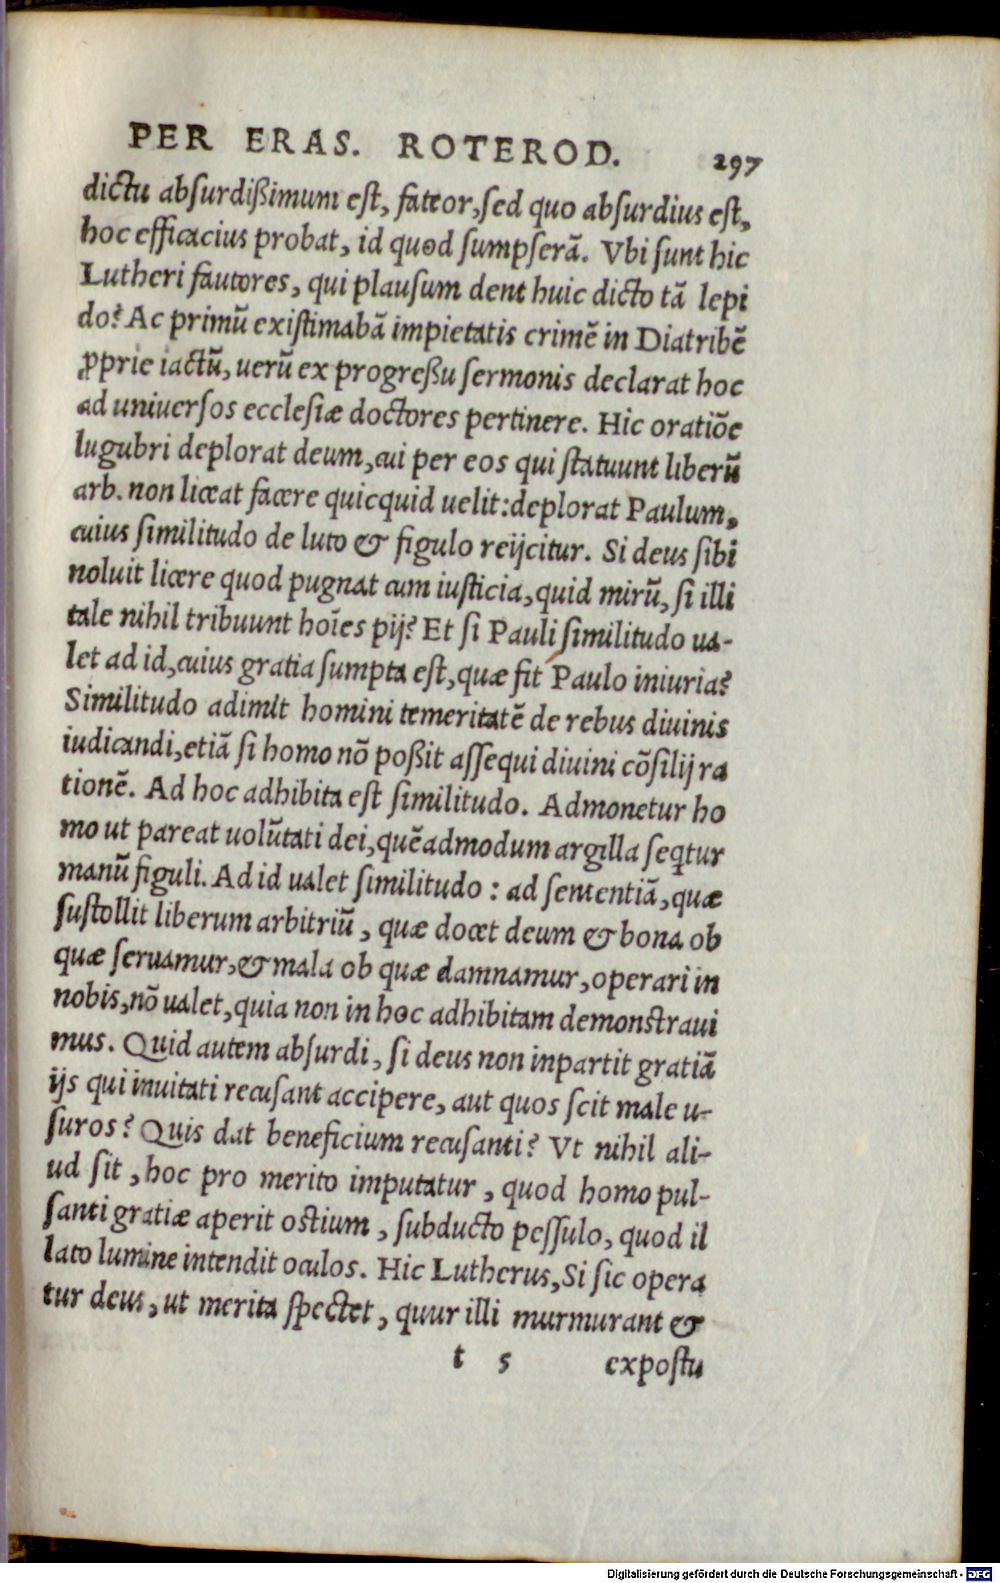 PER ERAS. ROTEROD. 297
dictu absurdißimum est, fateor, sed quo absurdius est,
hoc efficacius probat, id quod sumpserā. Vbi sunt hic
Lutheri fautores, qui plausum dent huic dicto tā lepi
do? Ac primū existimabā impietatis crimē in Diatribē
ꝓprie iactū, uerū ex progreßu sermonis declarat hoc
ad uniuersos ecclesiæ doctores pertinere. Hic oratiōe
lugubri deplorat deum, cui per eos qui statuunt liberū
arb. non liceat facere quicquid uelit: deplorat Paulum,
cuius similitudo de luto & figulo reijcitur. Si deus sibi
noluit licere quod pugnat cum iusticia, quid mirū, si illi
tale nihil tribuunt hoīes pij? Et si Pauli similitudo ua-
let ad id, cuius gratia sumpta est, quæ fit Paulo iniuria?
Similitudo adimit homini temeritatē de rebus diuinis
iudicandi, etiā si homo nō poßit assequi diuini cōsilij ra
tionē. Ad hoc adhibita est similitudo. Admonetur ho
mo ut pareat uolūtati dei, quēadmodum argilla seqtur
manū figuli. Ad id ualet similitudo: ad sententiā, quæ
sustollit liberum arbitriū, quæ docet deum & bona ob
quæ seruamur, & mala ob quæ damnamur, operari in
nobis, nō ualet, quia non in hoc adhibitam demonstraui
mus. Quid autem absurdi, si deus non inpartit gratiā
ijs qui inuitati recusant accipere, aut quos scit male u-
suros? Quis dat beneficium recusanti? Vt nihil ali-
ud sit, hoc pro merito imputatur, quod homo pul-
santi gratiæ aperit ostium, subducto pessulo, quod il
lato lumine intendit oculos. Hic Lutherus, Si sic opera
tur deus, ut merita spectet, quur illi murmurant &
t 5 expostu
Digitalisierung gefördert durch die Deutsche Forschungsgemeinschaft - DFG